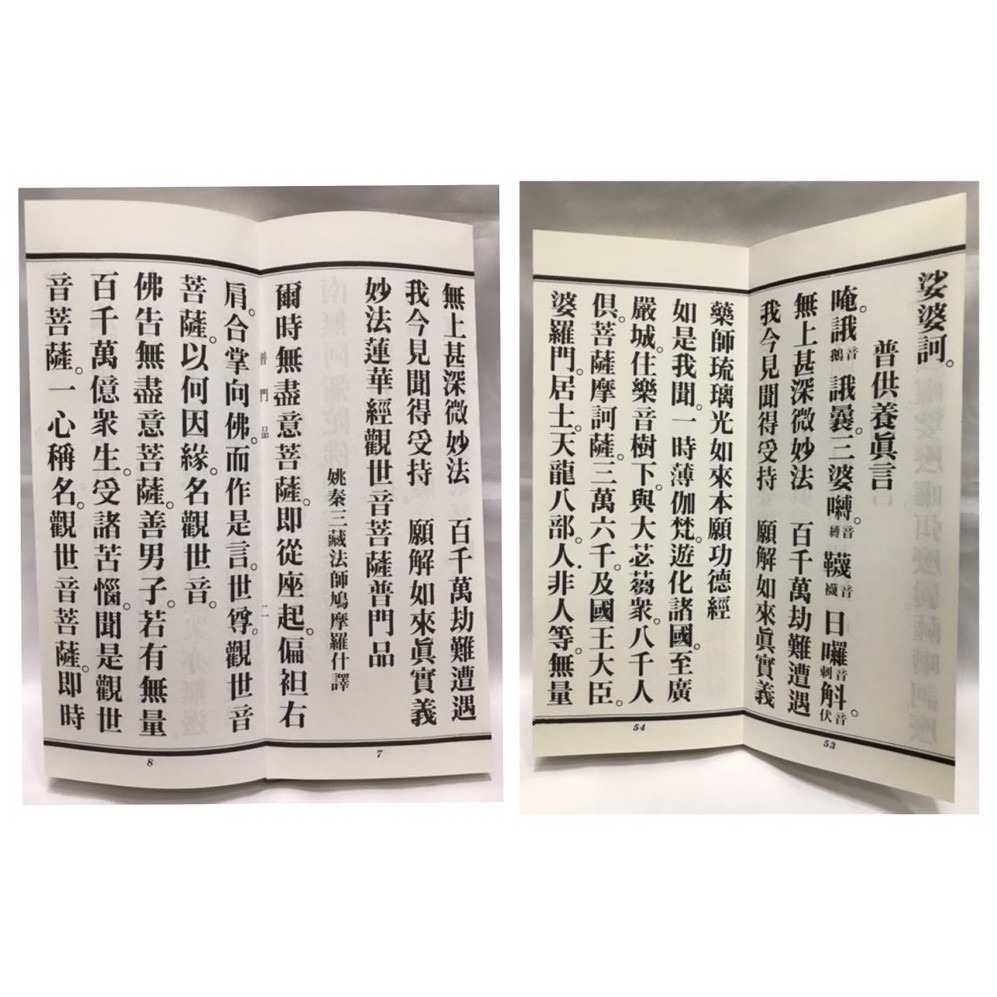 無上甚深微妙法　百千萬劫難遭遇
我今見聞得受持　願解如來眞實義
妙法蓮華經觀世音菩薩普門品
姚秦三藏法師鳩摩羅什譯
爾時無盡意菩薩。即從座起。偏袒右
7
普門品　二
肩。合掌向佛。而作是言。世尊。觀世音
菩薩。以何因緣。名觀世音。
佛告無盡意菩薩。善男子。若有無量
百千萬億衆生。受諸苦惱。聞是觀世
音菩薩。一心稱名。觀世音菩薩。即時
8
娑婆訶。
普供養眞言
唵。誐音鵝　誐曩。三婆嚩。音縛　韈音襪　日囉音刺斛音伏。
無上甚深微妙法　百千萬劫難遭遇
我今見聞得受持　願解如來眞實義
53
藥師琉璃光如來本願功德經
如是我聞。一時薄伽梵。遊化諸國。至廣
嚴城。住樂音樹下。與大苾蒭衆。八千人
俱。菩薩摩訶薩。三萬六千。及國王大臣。
婆羅門。居士。天龍八部。人非人等。無量
54